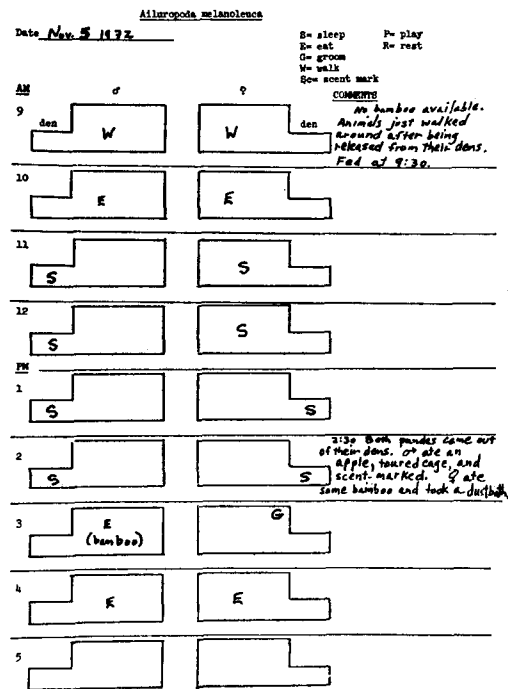 Ailuropoda melanoleuca
Date Nov. 5 1972
S= sleep P= play
E= eat R= rest
G= groom
W= walk
Sc= scent mark
AM ♂ ♀ COMMENTS
9 den W W den
No bamboo available.
Animals just walked
around after being
released from their dens.
Fed at 9:30.
10 E E
11 S S
12 S S
PM
1 S S
2 S S
2:30 Both pandas came out
of their dens. ♂ ate an
apple, toured cage, and
scent-marked. ♀ ate
some bamboo and took a dustbath.
3 E G
(bamboo)
4 E E
5